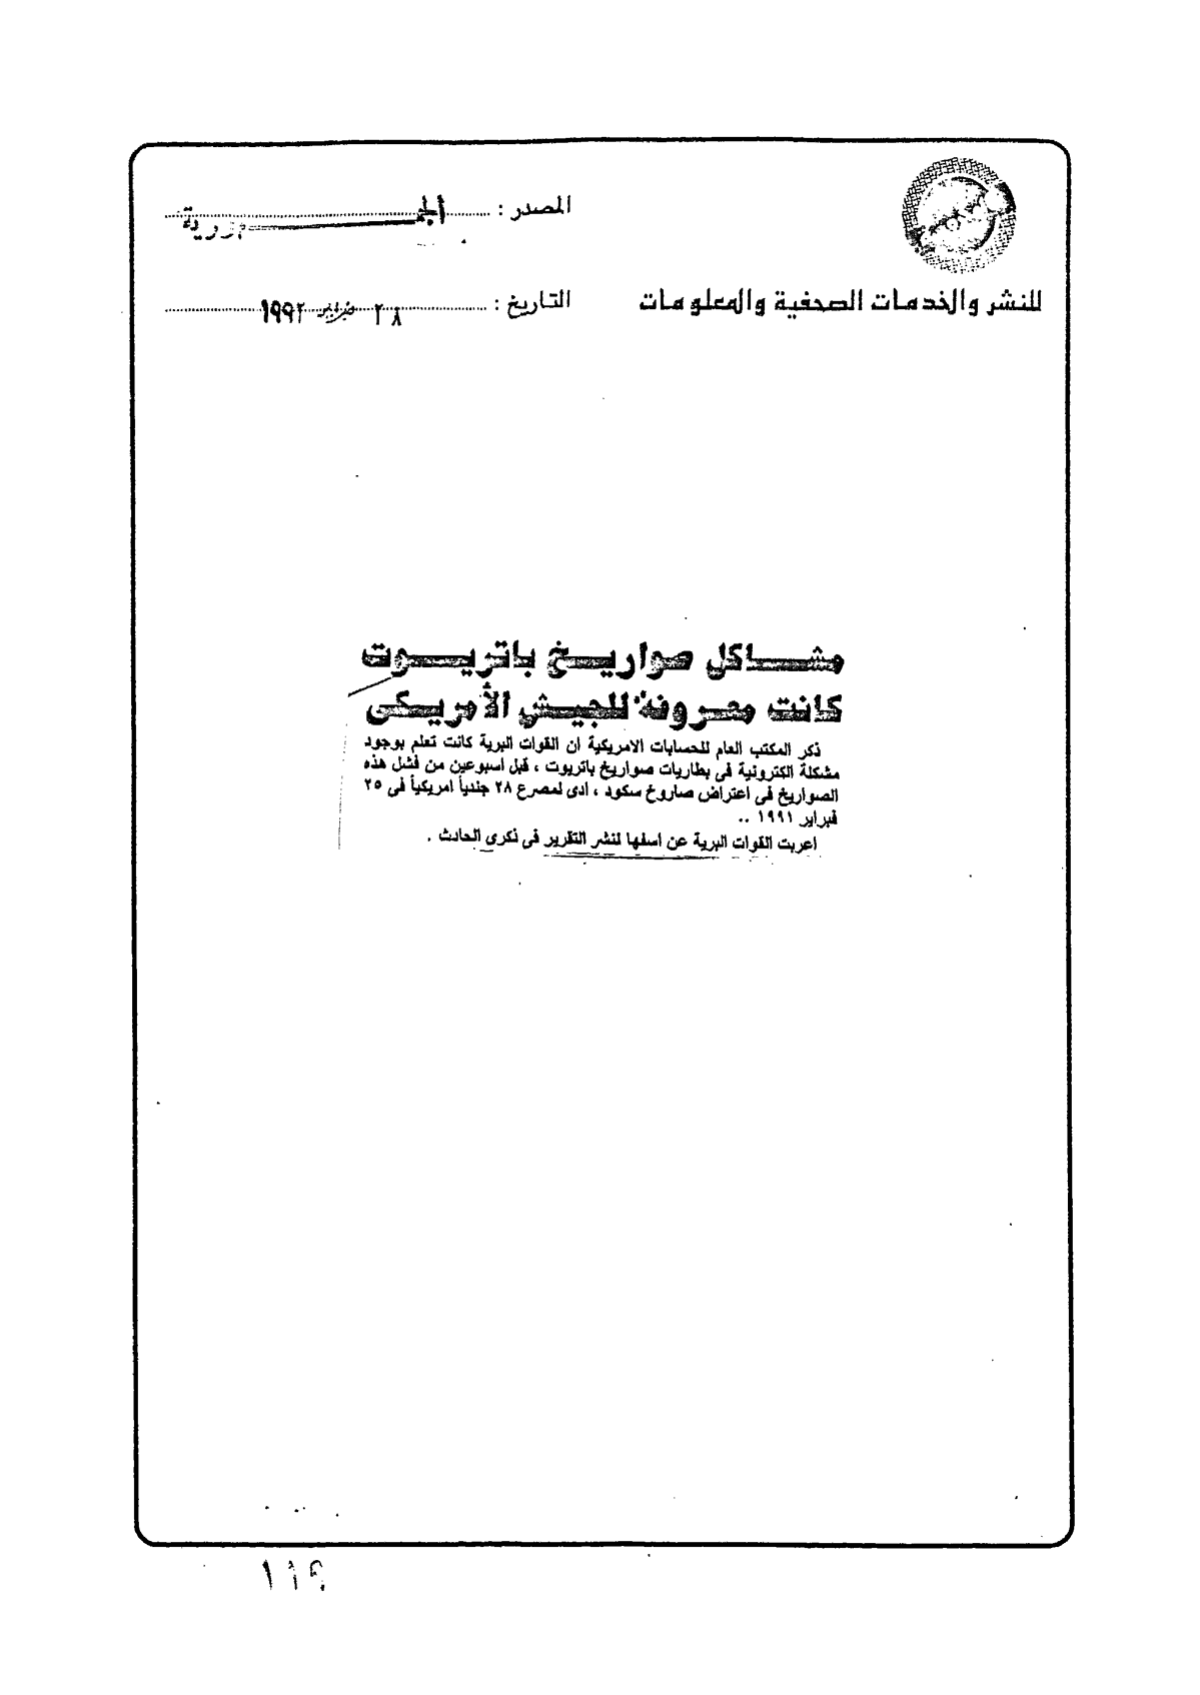 المصدر : الجمهورية
للنشر والخدمات الصحفية والمعلومات
التاريخ : ٢٨ فبراير ١٩٩٢
مشاكل صواريخ باتريوت
كانت معروفة للجيش الأمريكى
ذكر المكتب العام للحسابات الامريكية ان القوات البرية كانت تعلم بوجود
مشكلة الكترونية فى بطاريات صواريخ باتريوت ، قبل اسبوعين من فشل هذه
الصواريخ فى اعتراض صاروخ سكود ، ادى لمصرع ٢٨ جندياً امريكياً فى ٢٥
فبراير ١٩٩١ ..
اعربت القوات البرية عن اسفها لنشر التقرير فى ذكرى الحادث .